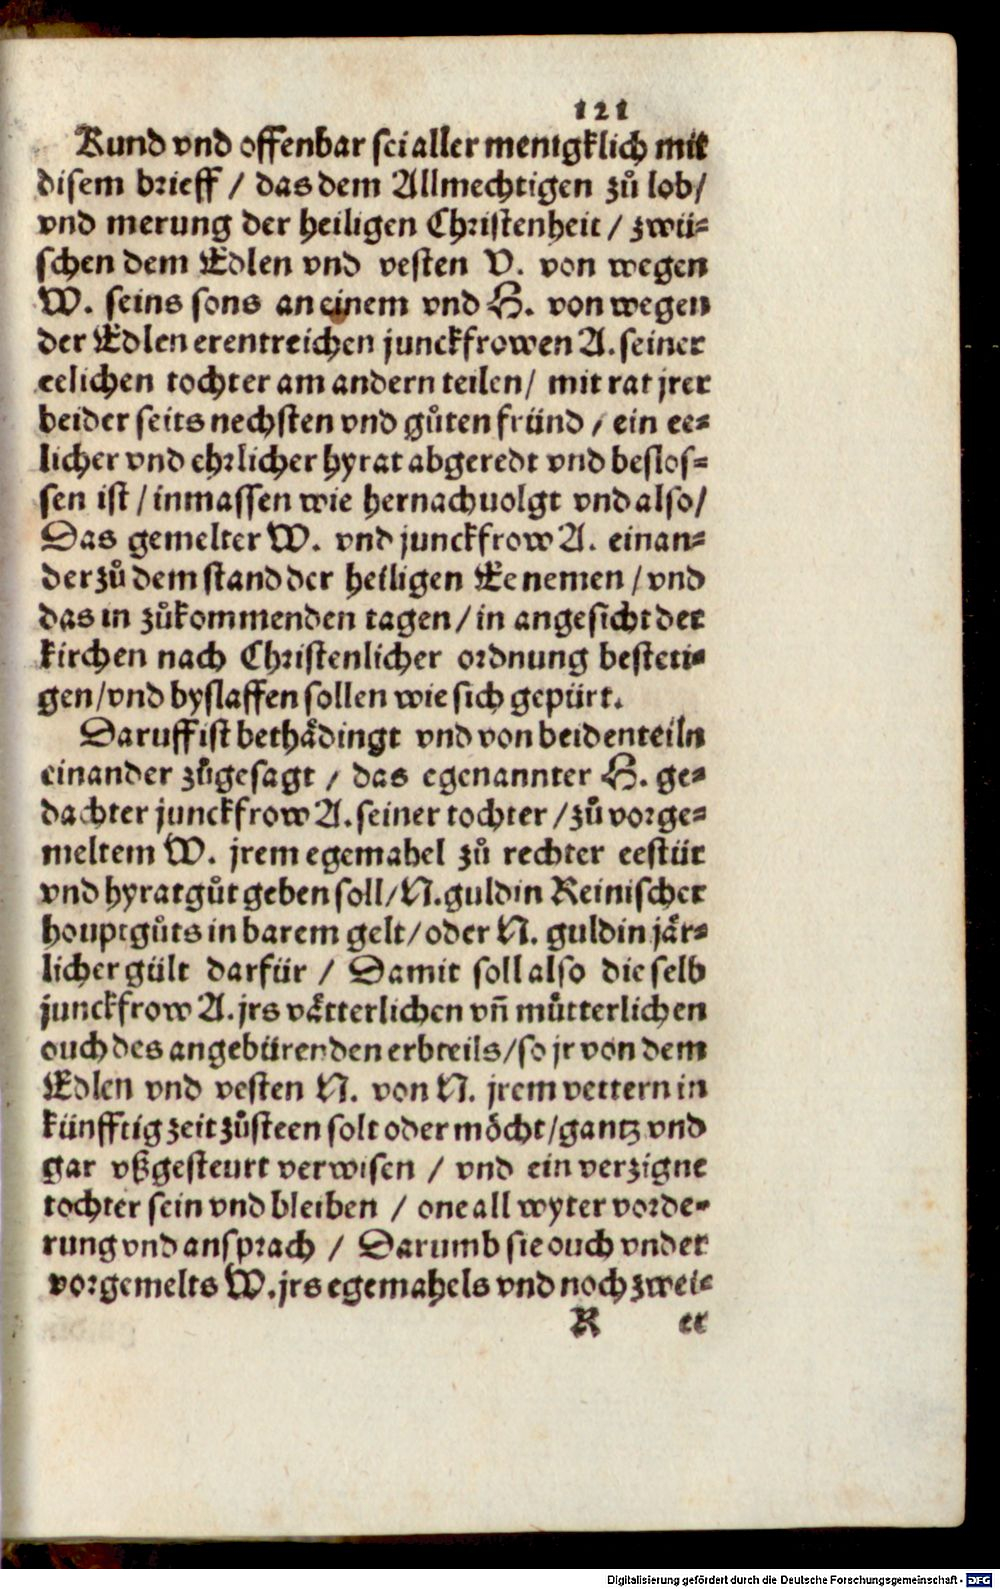 121
Kund vnd offenbar sei aller menigklich mit
disem brieff / das dem Allmechtigen zů lob/
vnd merung der heiligen Christenheit / zwü-
schen dem Edlen vnd vesten V. von wegen
W. seins sons an einem vnd H. von wegen
der Edlen erentreichen junckfrowen A. seiner
eelichen tochter am andern teilen/ mit rat jrer
beider seits nechsten vnd gůten fründ / ein ee-
licher vnd ehrlicher hyrat abgeredt vnd beslos-
sen ist / inmassen wie hernach uolgt vnd also/
Das gemelter W. vnd junckfrow A. einan-
der zů dem stand der heiligen Ee nemen / vnd
das in zůkommenden tagen / in angesicht der
kirchen nach Christenlicher ordnung besteti-
gen/vnd byslaffen sollen wie sich gepürt.
Daruff ist bethådingt vnd von beiden teiln
einander zůgesagt / das egenannter H. ge-
dachter junckfrow A. seiner tochter / zů vorge-
meltem W. jrem egemahel zů rechter eestür
vnd hyratgůt geben soll/ N. guldin Reinischer
houptgůts in barem gelt/ oder N. guldin jår-
licher gült darfür / Damit soll also die selb
junckfrow A. jrs våtterlichen vñ můtterlichen
ouch des angebürenden erbteils/ so jr von dem
Edlen vnd vesten N. von N. jrem vettern in
künfftig zeit zůsteen solt oder möcht/ gantz vnd
gar vßgesteurt verwisen / vnd ein verzigne
tochter sein vnd bleiben / one all wyter vorde-
rung vnd ansprach / Darumb sie ouch vnder
vorgemelts W. jrs egemahels vnd noch zwei-
R er
Digitalisierung gefördert durch die Deutsche Forschungsgemeinschaft - DFG